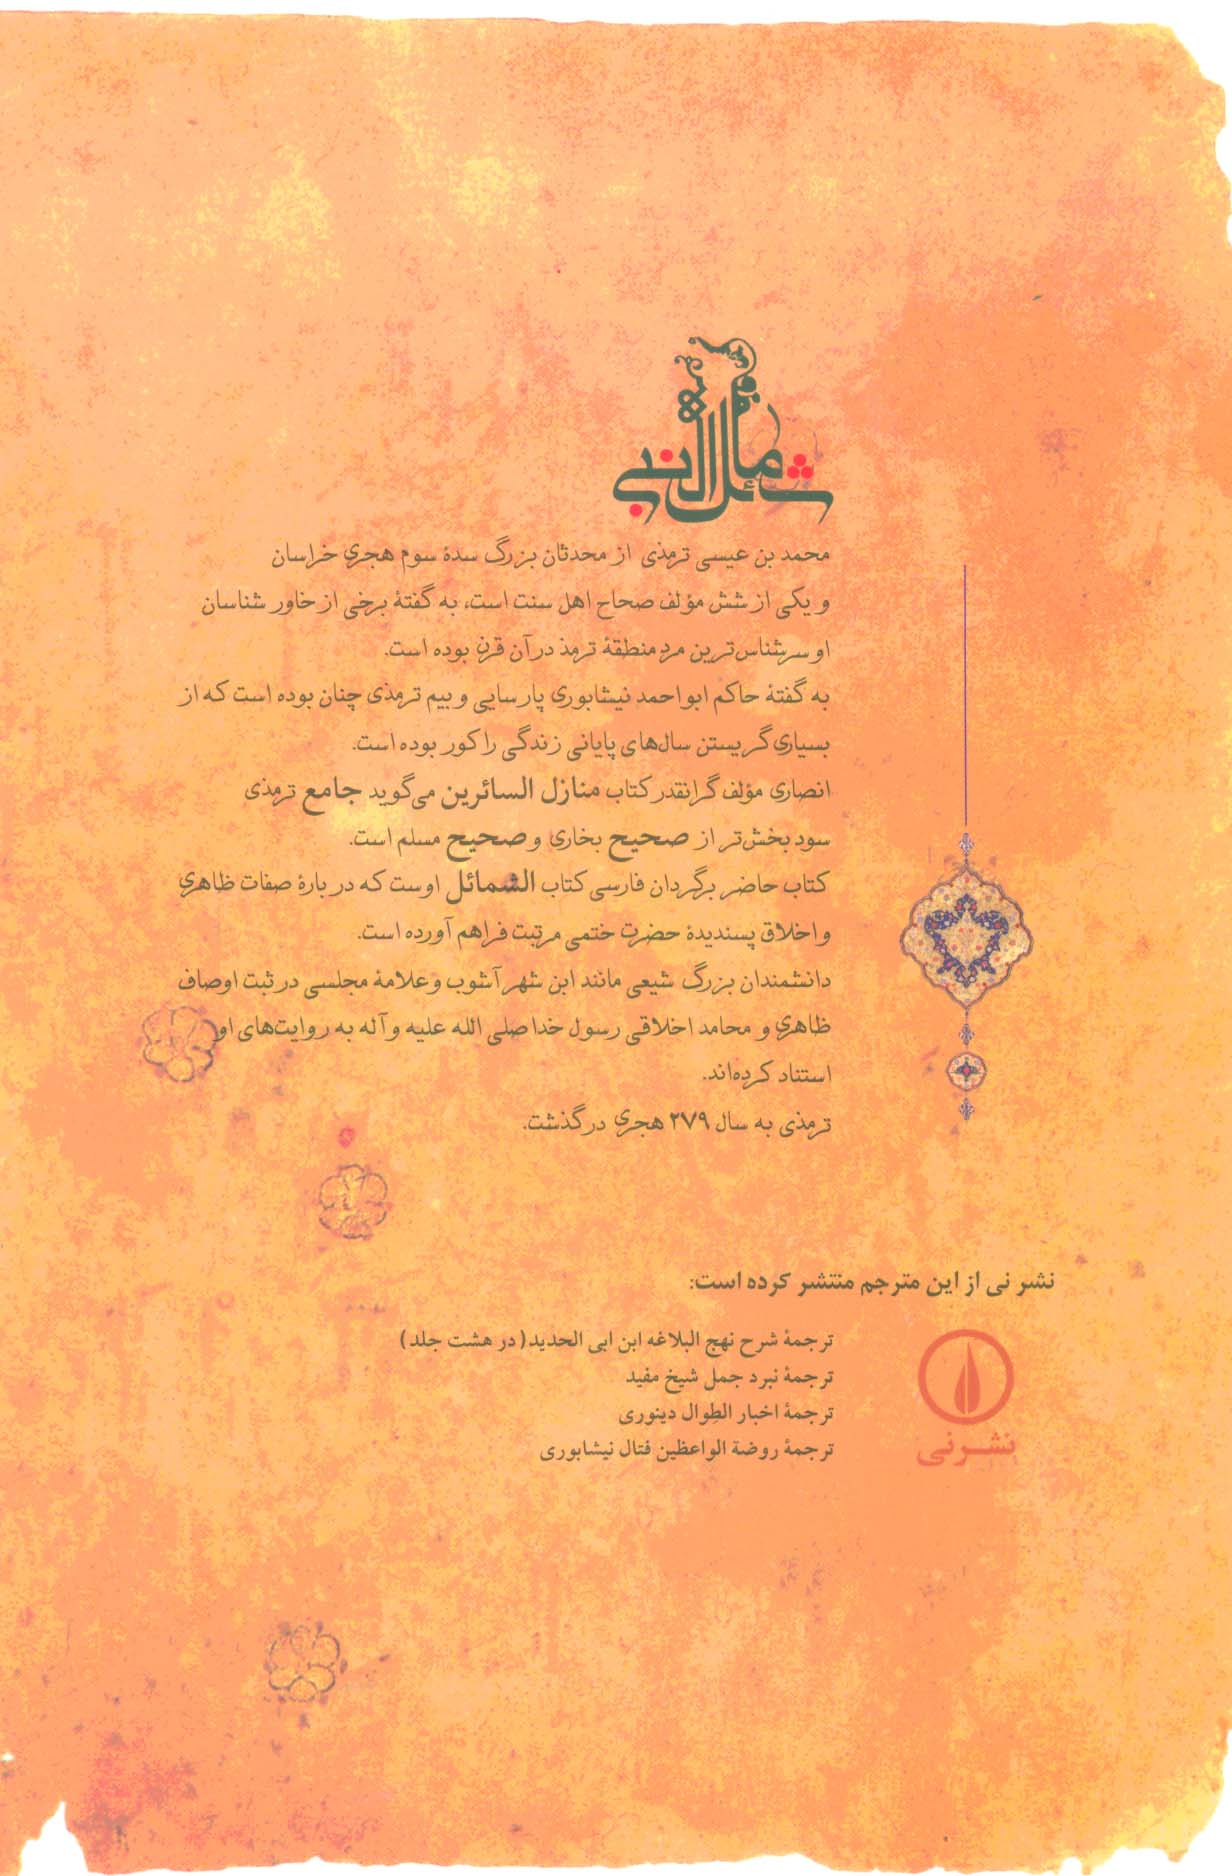 شمائل النبی
محمد بن عیسی ترمذی از محدثان بزرگ سدهٔ سوم هجری خراسان
و یکی از شش مؤلف صحاح اهل سنت است، به گفتهٔ برخی از خاور شناسان
او سرشناس‌ترین مرد منطقهٔ ترمذ در آن قرن بوده است.
به گفتهٔ حاکم ابواحمد نیشابوری پارسایی و بیم ترمذی چنان بوده است که از
بسیاری گریستن سال‌های پایانی زندگی را کور بوده است.
انصاری مؤلف گرانقدر کتاب منازل السائرین می‌گوید جامع ترمذی
سود بخش‌تر از صحیح بخاری و صحیح مسلم است.
کتاب حاضر برگردان فارسی کتاب الشمائل اوست که در بارهٔ صفات ظاهری
و اخلاق پسندیدهٔ حضرت ختمی مرتبت فراهم آورده است.
دانشمندان بزرگ شیعی مانند ابن شهر آشوب و علامهٔ مجلسی در ثبت اوصاف
ظاهری و محامد اخلاقی رسول خدا صلی الله علیه و آله به روایت‌های او
استناد کرده‌اند.
ترمذی به سال ۲۷۹ هجری درگذشت.
نشر نی از این مترجم منتشر کرده است:
ترجمهٔ شرح نهج البلاغه ابن ابی الحدید (در هشت جلد)
ترجمهٔ نبرد جمل شیخ مفید
ترجمهٔ اخبار الطِوال دینوری
ترجمهٔ روضة الواعظین فتال نیشابوری
نشر نی